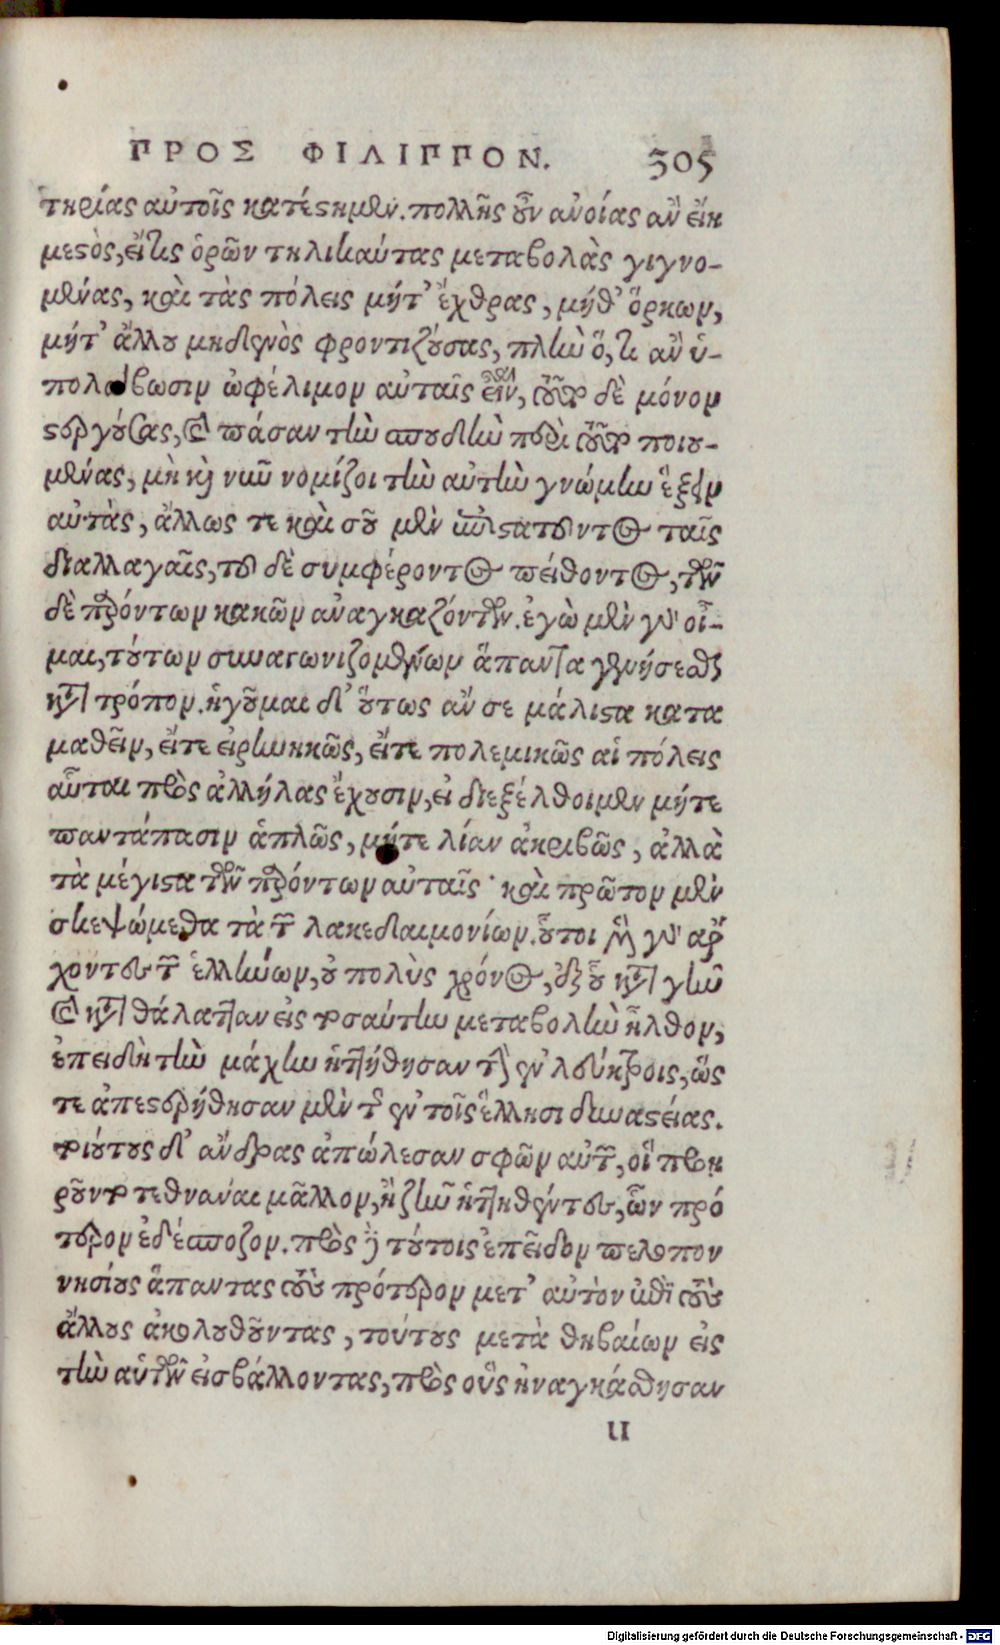 ΠΡΟΣ ΦΙΛΙΠΠΟΝ. 305
τηρίας αὐτοῖς κατέστημεν. πολλῆς οὖν ἀνοίας ἂν εἴη
μεστὸς, εἴ τις ὁρῶν τηλικαύτας μεταβολὰς γιγνο-
μένας, καὶ τὰς πόλεις μήτ' ἔχθρας, μήθ' ὅρκων,
μήτ' ἄλλου μηδενὸς φροντιζούσας, πλὴν ὅ, τι ἂν ὑ-
πολάβωσιν ὠφέλιμον αὐταῖς εἶναι, τοῦτο δὲ μόνον
στεργούσας, καὶ πᾶσαν τὴν σπουδὴν περὶ τοῦτο ποιου-
μένας, μὴ καὶ νῦν νομίζοι τὴν αὐτὴν γνώμην ἕξειν
αὐτὰς, ἄλλως τε καὶ σοῦ μὲν ἐπιστατοῦντος ταῖς
διαλλαγαῖς, τοῦ δὲ συμφέροντος πείθοντος, τῶν
δὲ παρόντων κακῶν ἀναγκαζόντων. ἐγὼ μὲν γὰρ οἶ-
μαι, τούτων συναγωνιζομένων ἅπαντα γενήσεσθαι
κατὰ τρόπον. ἡγοῦμαι δ' οὕτως ἄν σε μάλιστα κατα
μαθεῖν, εἴτε εἰρηνικῶς, εἴτε πολεμικῶς αἱ πόλεις
αὗται πρὸς ἀλλήλας ἔχουσιν, εἰ διεξέλθοιμεν μήτε
παντάπασιν ἁπλῶς, μήτε λίαν ἀκριβῶς, ἀλλὰ
τὰ μέγιστα τῶν παρόντων αὐταῖς· καὶ πρῶτον μὲν
σκεψώμεθα τὰ τῶν λακεδαιμονίων. οὗτοι μὲν γὰρ ἄρ
χοντες τῶν ἑλλήνων, οὐ πολὺς χρόνος, ἐξ οὗ κατὰ γῆν
καὶ κατὰ θάλατταν εἰς τοσαύτην μεταβολὴν ἦλθον,
ἐπειδὴ τὴν μάχην ἡττήθησαν τὴν ἐν λεύκτροις, ὥς
τε ἀπεστερήθησαν μὲν τῆς ἐν τοῖς ἕλλησι δυναστείας.
τοιούτους δ' ἄνδρας ἀπώλεσαν σφῶν αὐτῶν, οἳ προῃ
ροῦντο τεθνάναι μᾶλλον, ἢ ζῆν ἡττηθέντες, ὧν πρό
τερον ἐδέσποζον. πρὸς δὲ τούτοις ἐπεῖδον πελοπον
νησίους ἅπαντας τοὺς πρότερον μετ' αὐτὸν ἐπὶ τοὺς
ἄλλους ἀκολουθοῦντας, τούτους μετὰ θηβαίων εἰς
τὴν αὑτῶν εἰσβάλλοντας, πρὸς οὓς ἠναγκάσθησαν
U
Digitalisierung gefördert durch die Deutsche Forschungsgemeinschaft - DFG